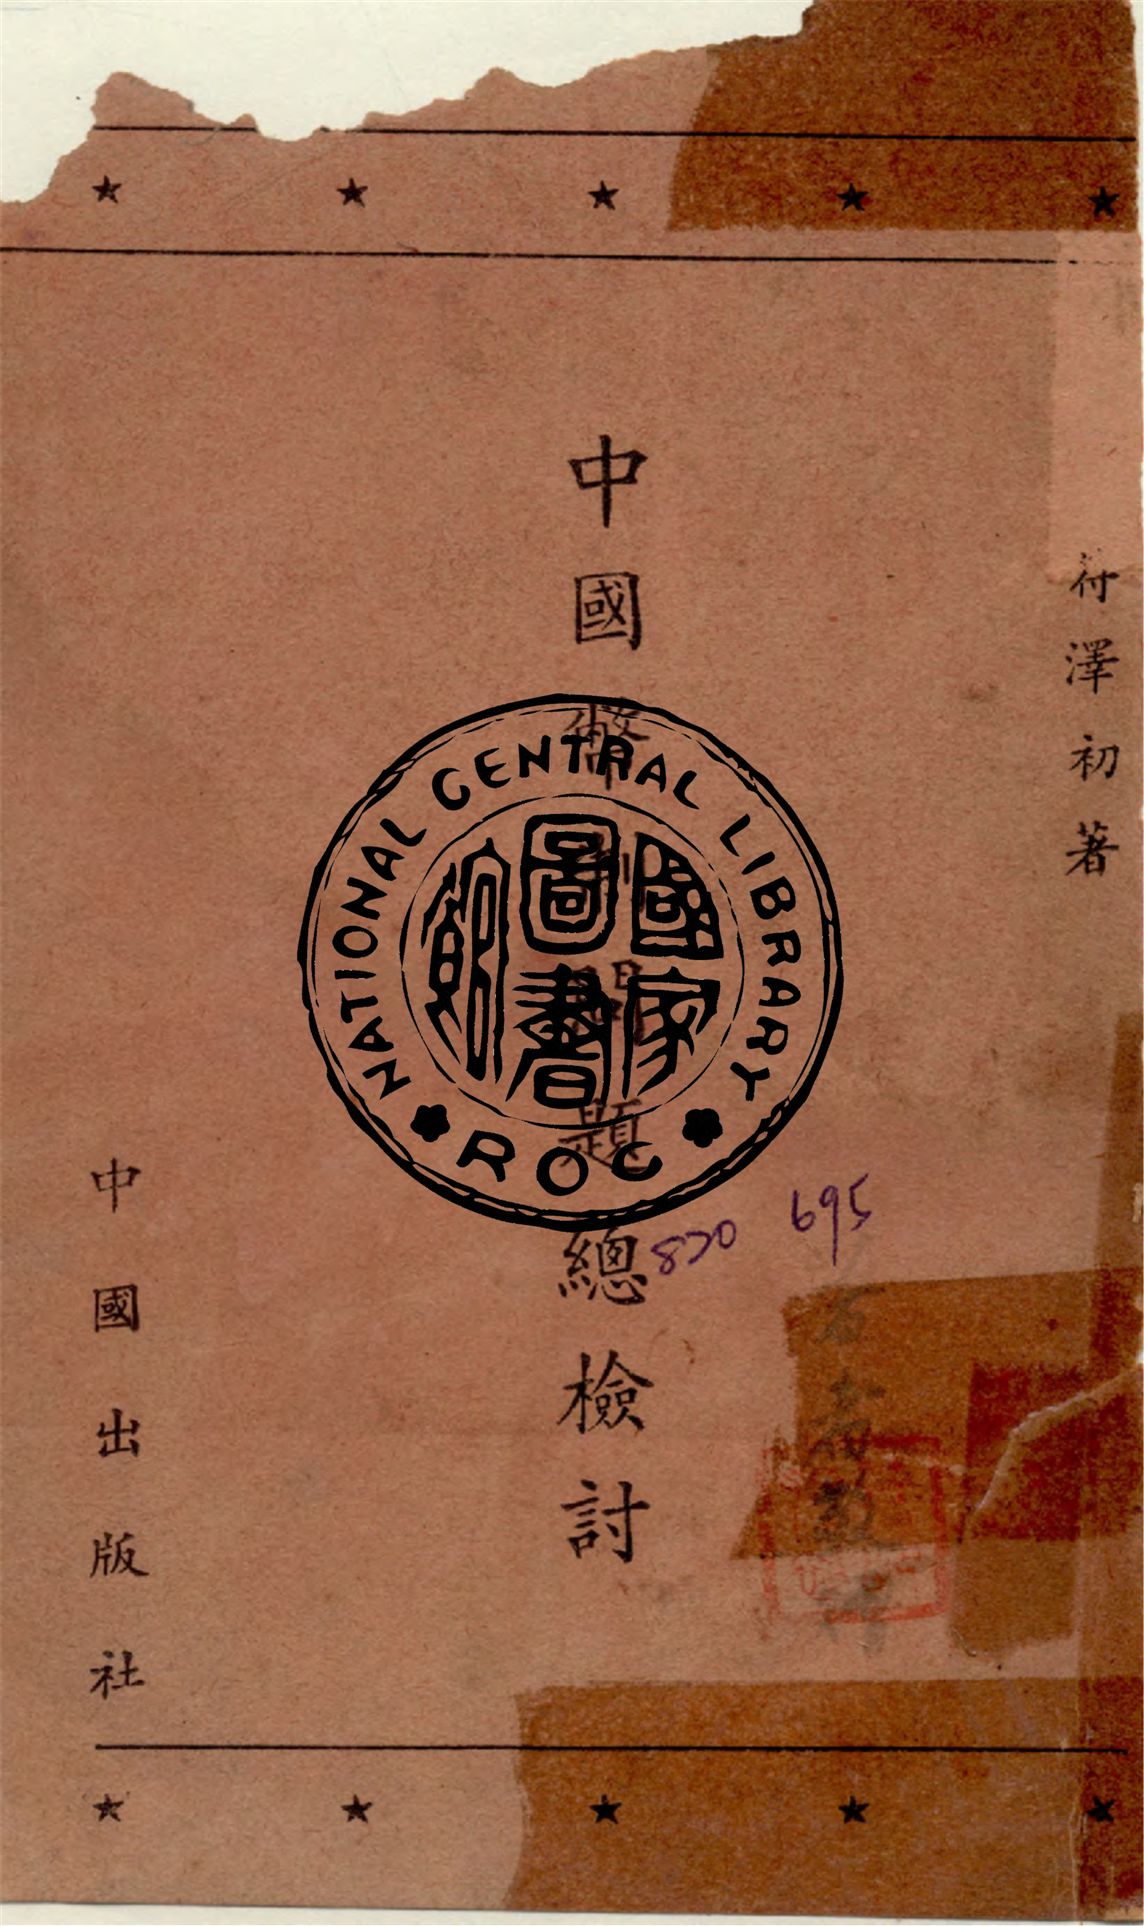 符澤初著
中國幣制問題總檢討
中國出版社
NATIONAL CENTRAL LIBRARY
ROC
國家圖書館
820
695